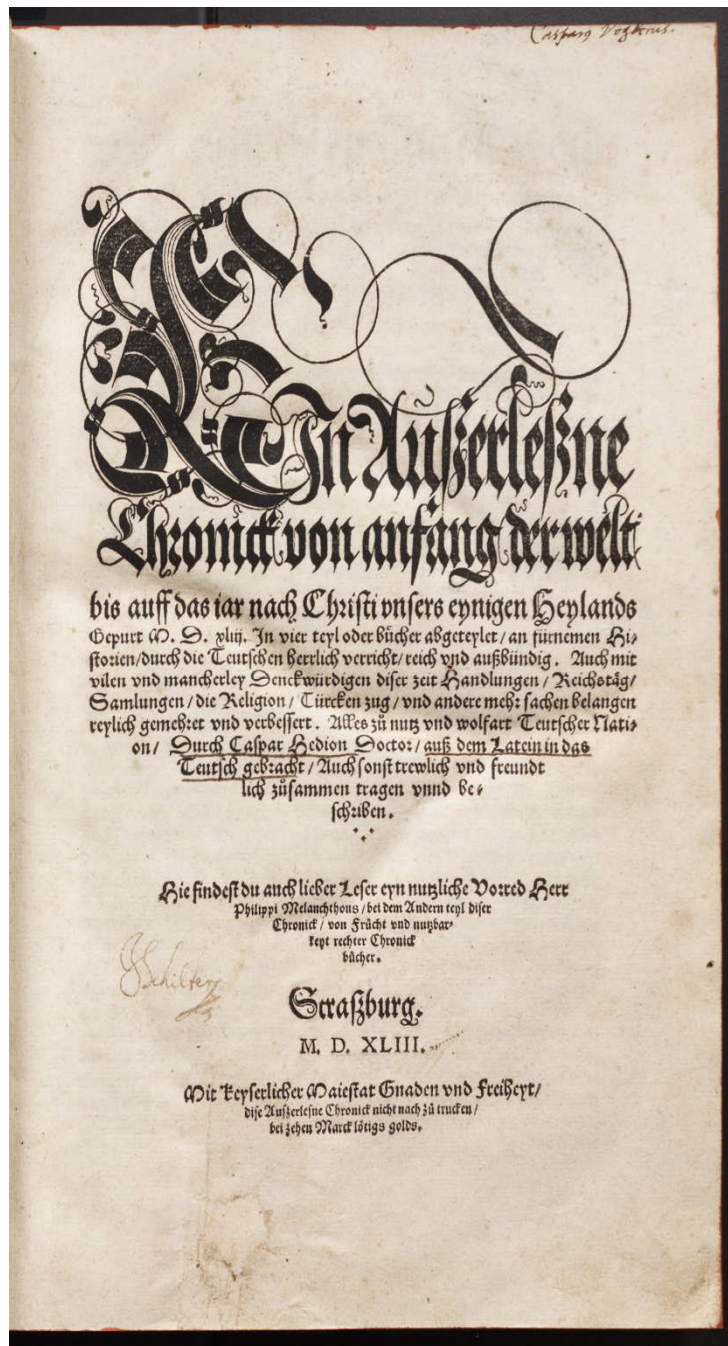 EIn Außerleßne
Chronick von anfang der welt
bis auff das iar nach Christi vnsers eynigen Heylands
Gepurt M. D. xliij. In vier teyl oder bücher abgeteylet / an fürnemen Hi⸗
storien / durch die Teutschen herrlich verricht / reich vnd außbündig. Auch mit
vilen vnd mancherley Denckwürdigen diser zeit Handlungen / Reichstäg /
Samlungen / die Religion / Türcken zug / vnd andere mehr sachen belangen
reylich gemehret vnd verbessert. Alles zů nutz vnd wolfart Teutscher Nati⸗
on / Durch Caspar Hedion Doctor / auß dem Latein in das
Teutsch gebracht / Auch sonst trewlich vnd freundt
lich zůsammen tragen vnnd be⸗
schriben.
Hie findest du auch lieber Leser eyn nutzliche Vorred Herr
Philippi Melanchthons / bei dem Andern teyl diser
Chronick / von Frücht vnd nutzbar⸗
keyt rechter Chronick
bücher.
Schilter
Straßburg.
M. D. XLIII.
Mit Keyserlicher Maiestat Gnaden vnd Freiheyt /
dise Außerlesne Chronick nicht nach zů trucken /
bei zehen Marck lötigs golds.